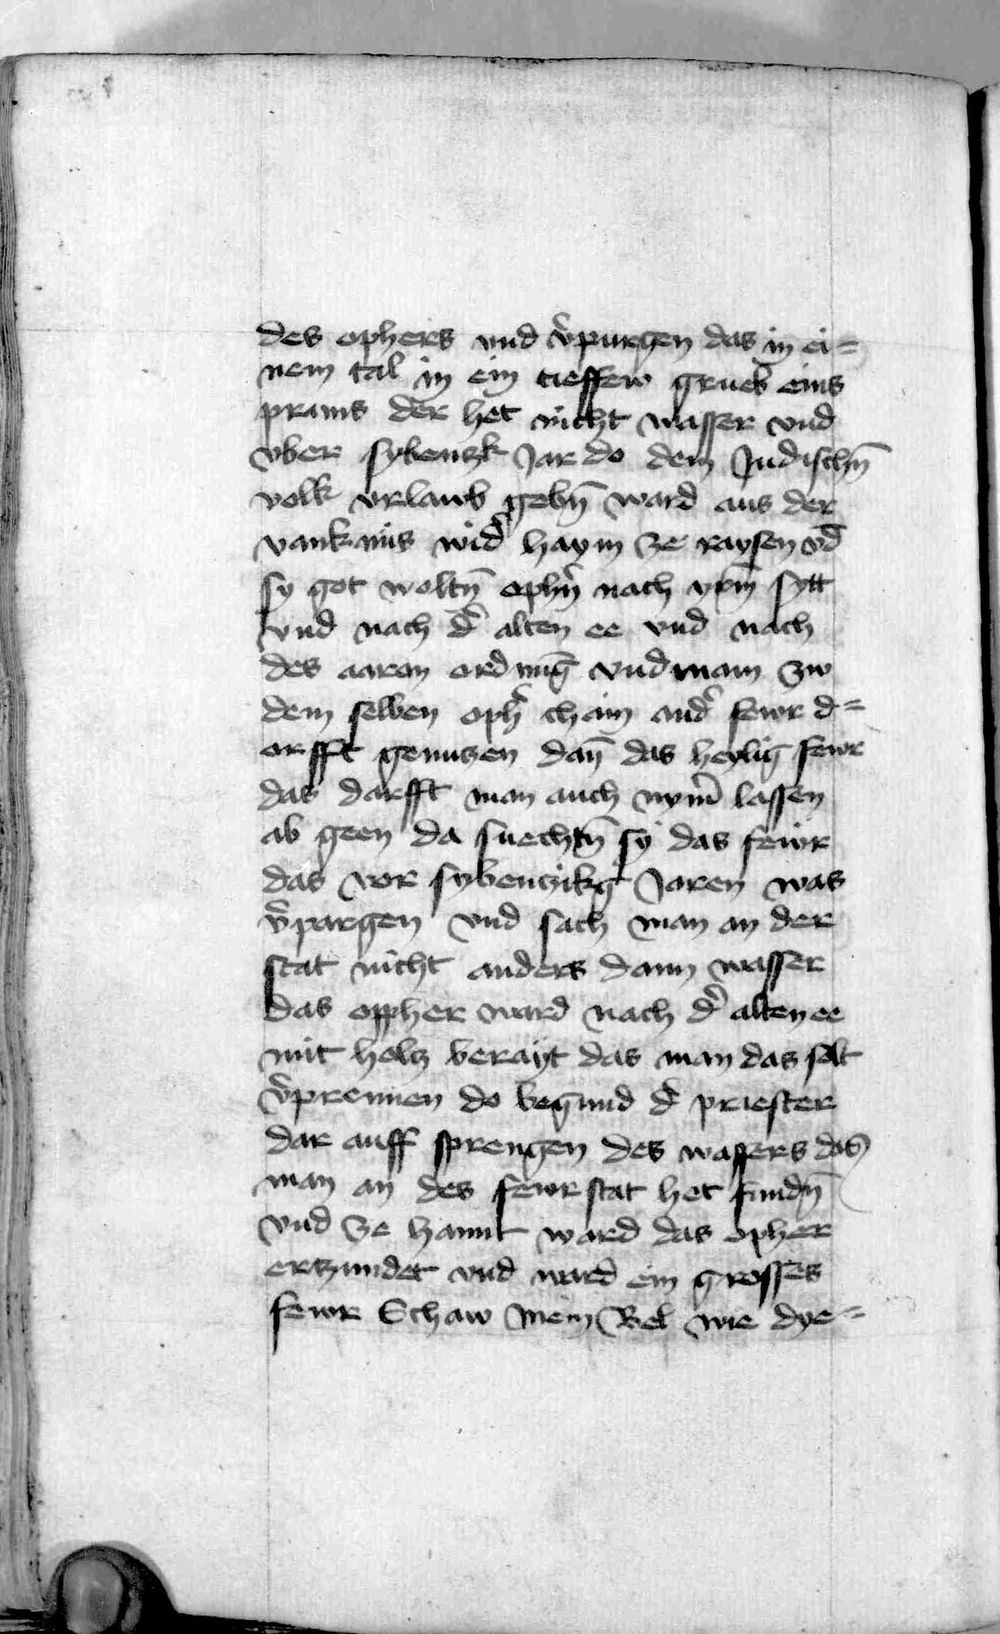 des ophers vnd v̉purgen das in ei=
nem tal in ein tieffew grueb eins
prunns der het nicht wasser vnd
vber sybentzk Jar do dem Judischn̄
volk vrlawb gebn̄ ward aus der
vanknus wid̉ haym ze raysen vd̄
sy got woltn̄ ophn̉ nach yrm̄ sytt
vnd nach d̉ alten ee vnd nach
des aaron ordnūg vnd mam zw
dem selben oph̉ chain and̉ fewr d=
orfft genutzen dan̄ das heylig fewr
das darfft man auch nym̉ lassen
ab geen da suechtn̄ sy das fewr
das vor sybentzikg̉ Joren was
v̉pargen vnd sach man an der
stat nicht anders dann wasser
das oppher ward nach d̉ alten ee
mit holtz berayt das man das solt
v̉prennen do begund d̉ priester
dar auff sprengen des wassers das
man an des fewr stat het fundn̄
vnd ze hannt ward das opher
entzundet vnd ward ein grosses
fewr Schaw mein Bel wie dye=